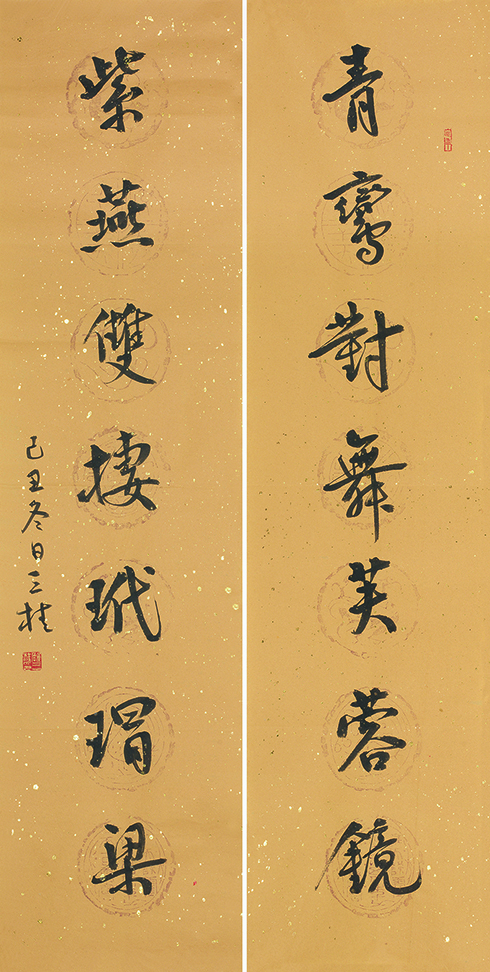 青鸞對舞芙蓉鏡
紫燕雙棲玳瑁梁
己丑冬日三桂